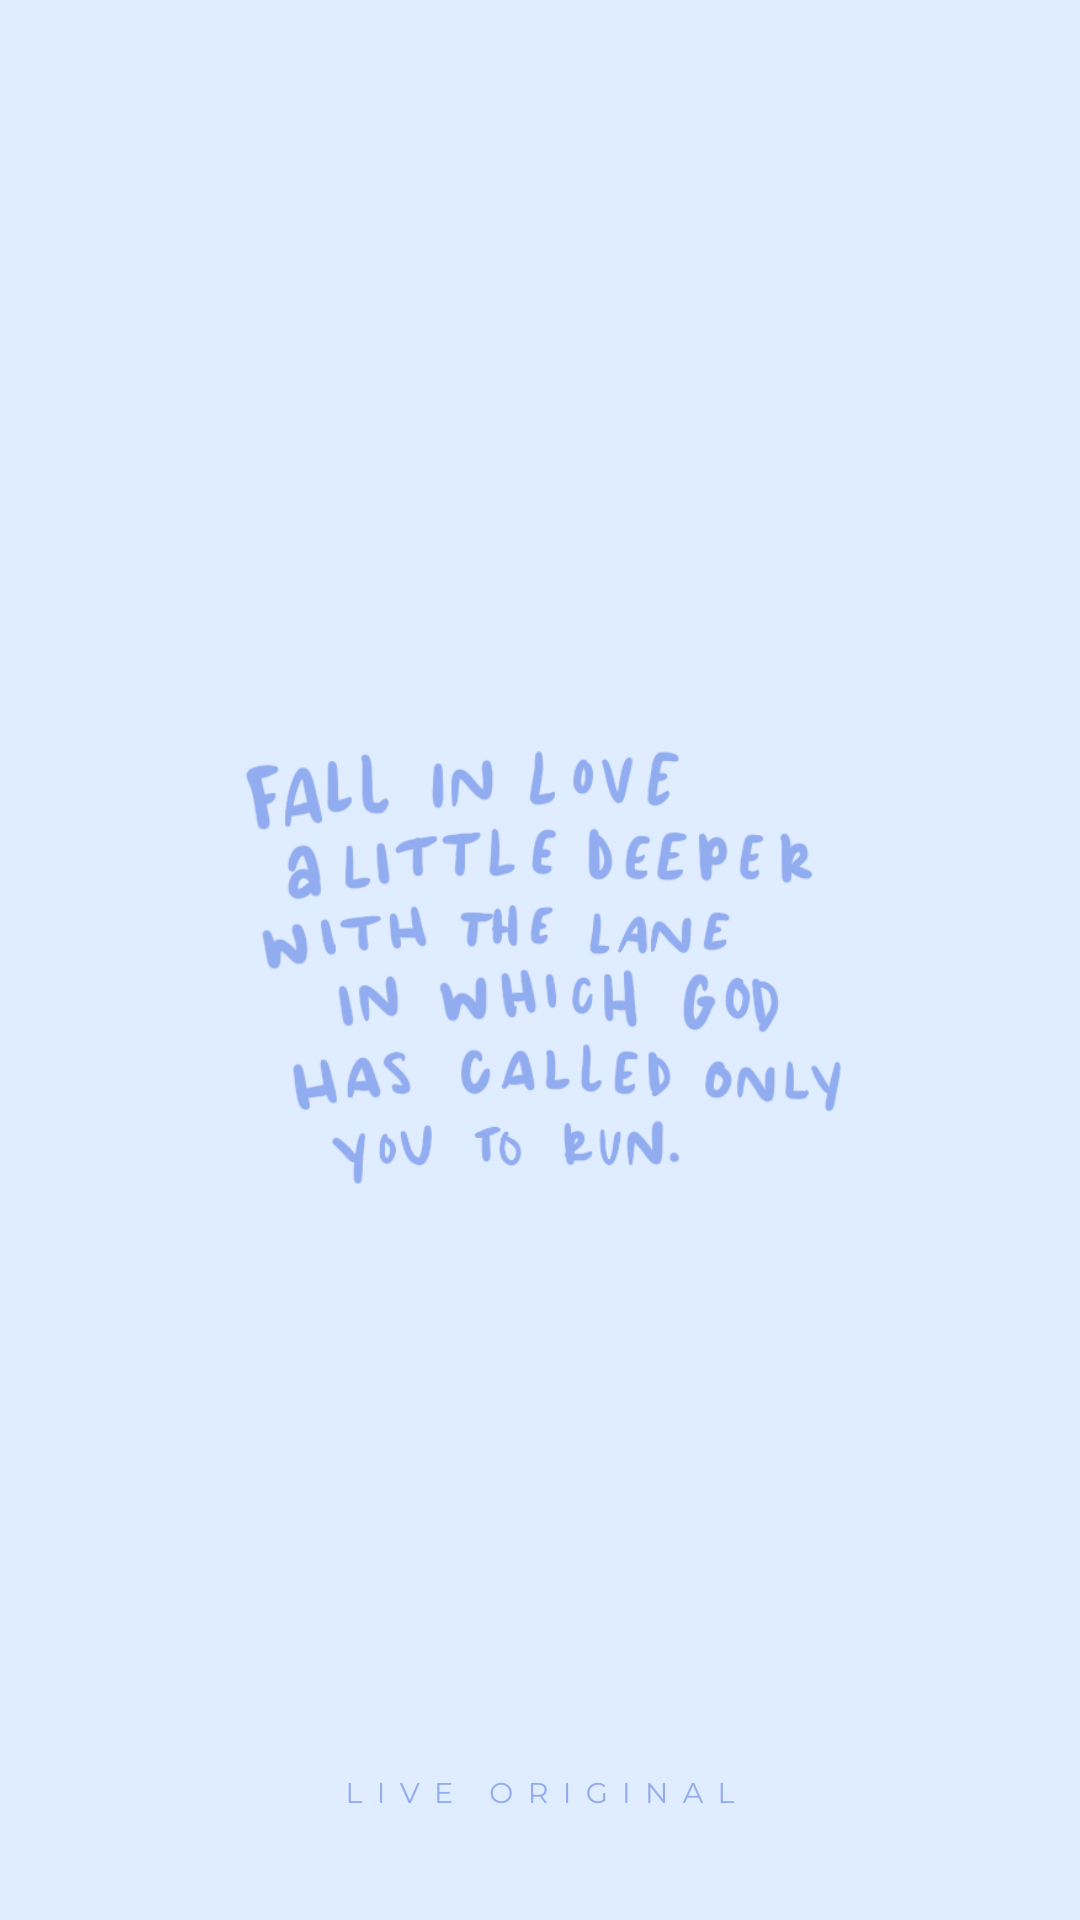 FALL IN LOVE
a LITTLE DEEPER
WITH THE LANE
IN WHICH GOD
HAS CALLED ONLY
YOU TO RUN.
LIVE ORIGINAL